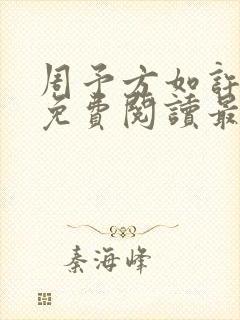 周予方如許
免費閱讀最
秦海峰